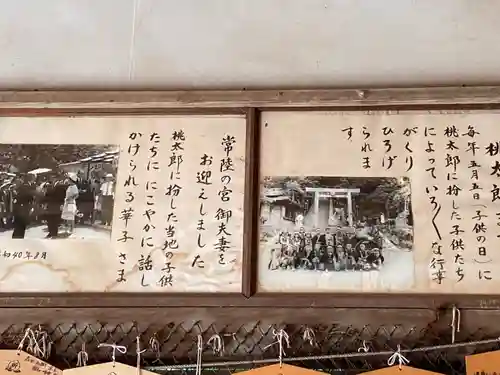 常陸の宮御夫妻を
お迎えしました
桃太郎に扮した当地の子供
たちににこやかに話し
かけられる華子さま
昭和40年8月
桃太郎
毎年五月五日(子供の日)に
桃太郎に扮した子供たち
によっていろくな行事
がくり
ひろげ
られま
す